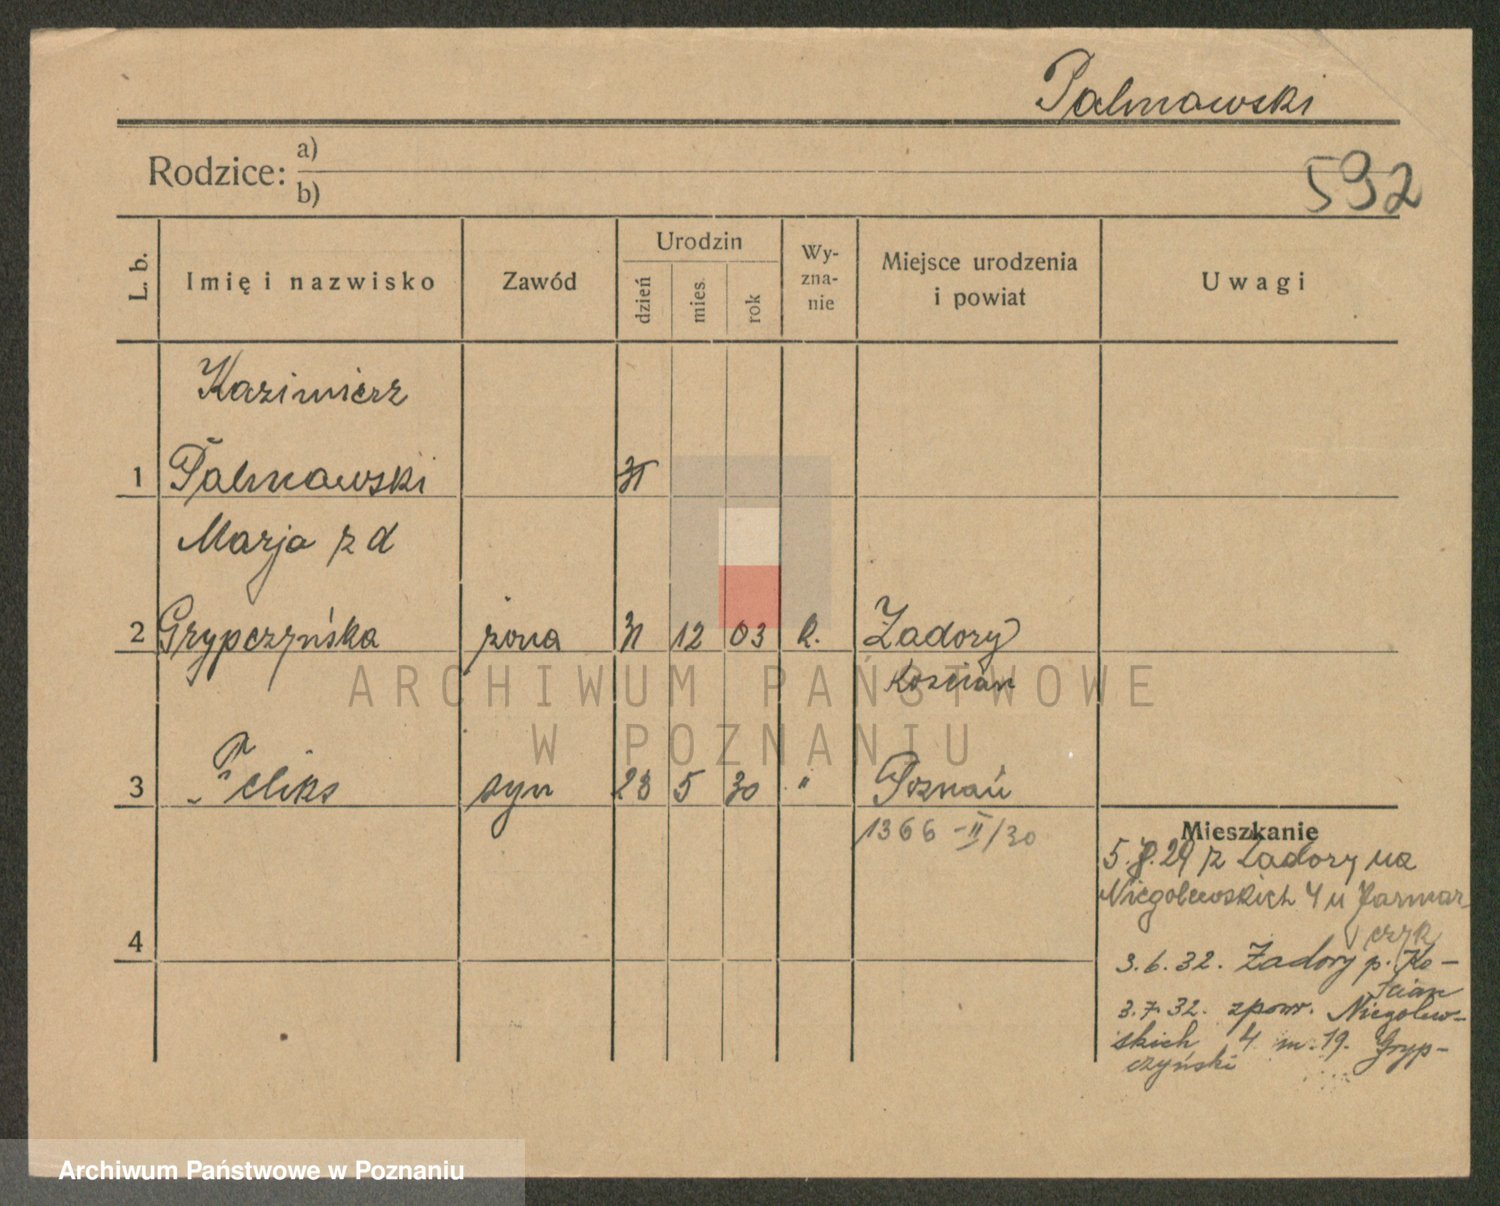 Palmowski
Rodzice: a)
b)
592
L. b.
Imię i nazwisko
Zawód
Urodzin
dzień
mies.
rok
Wy-
zna-
nie
Miejsce urodzenia
i powiat
Uwagi
Kazimierz
1 Palmowski 31
Marja z d
2 Grypczyńska żona 31 12 03 k. Zadory
Kościan
3 Feliks syn 23 5 30 " Poznań
1366 - II/30
Mieszkanie
5. 8. 29 z Zadory na
Niegolewskich 4 u Jarmar-
czyk
3. 6. 32. Zadory p. Ko-
ścian
3. 7. 32. zpow. Niegolew-
skich 4 m. 19. Gryp-
czyński
4
ARCHIWUM PAŃSTWOWE
W POZNANIU
Archiwum Państwowe w Poznaniu